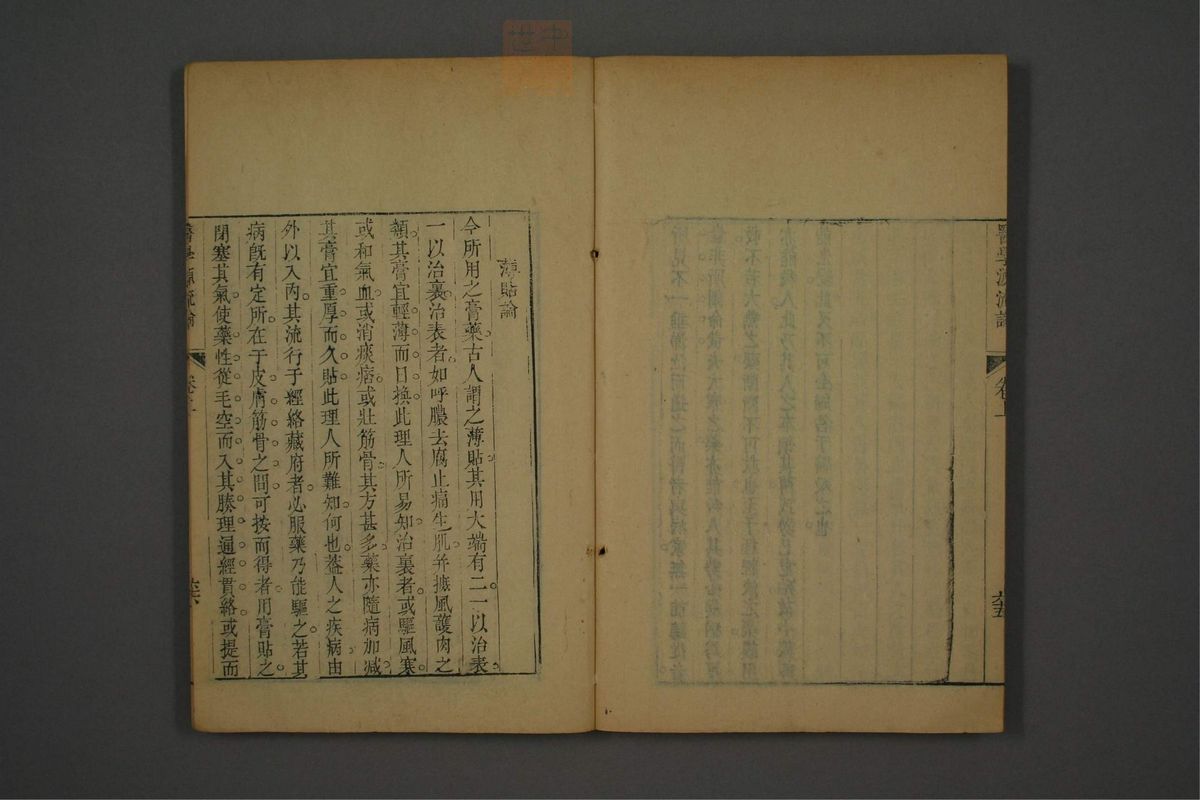 醫學源流論
卷上
六五
薄貼論
今所用之膏藥古人謂之薄貼其用大端有二一以治表
一以治裏治表者如呼膿去腐止痛生肌并摭風護肉之
類其膏宜輕薄而日換此理人所易知治裏者或驅風寒
或和氣血或消痰痞或壯筋骨其方甚多藥亦隨病加減
其膏宜重厚而久貼此理人所難知何也葢人之疾病由
外以入內其流行于經絡藏府者必服藥乃能驅之若其
病旣有定所在于皮膚筋骨之間可按而得者用膏貼之
閉塞其氣使藥性從毛空而入其腠理通經貫絡或提而
醫學源流論
卷上
六六